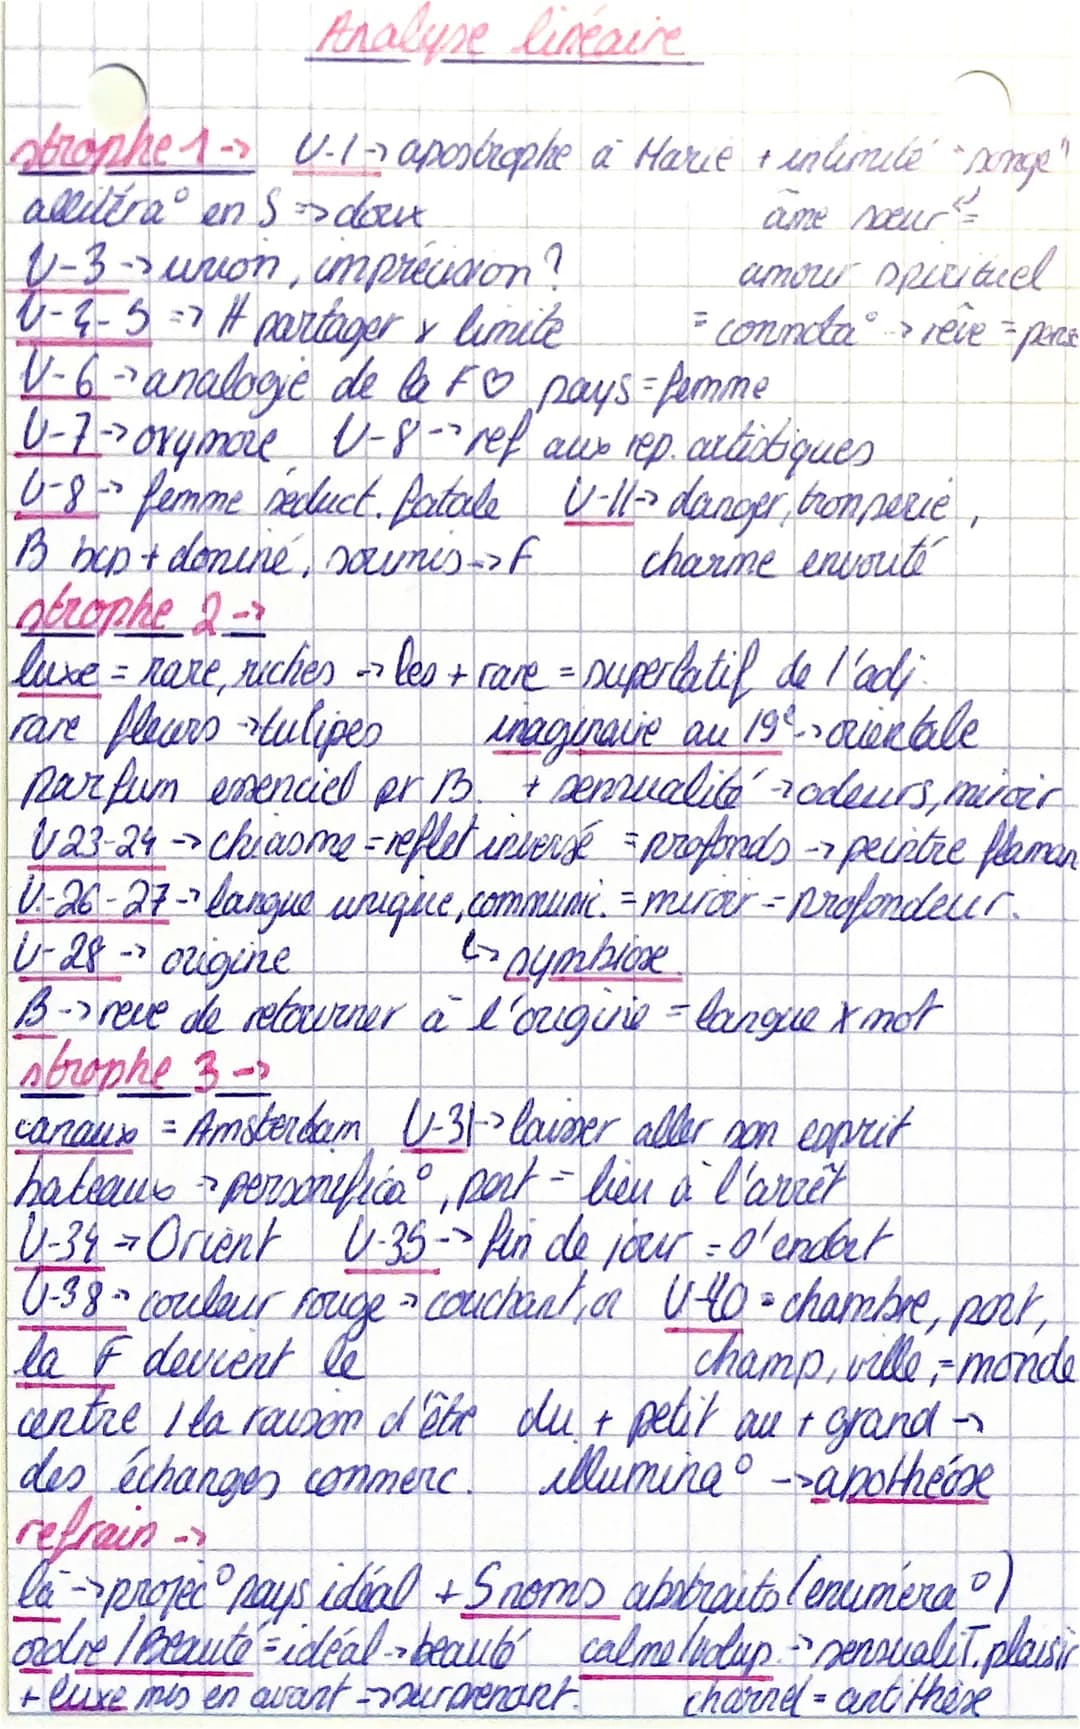 Analyse linéaire
strophe 1 -> V-1 -> apostrophe à Marie + intimité "songe"
allitéra° en S => doux âme sœur =
V-3 -> union, imprécision ? amour spirituel
V-4-5 => # partager x limite = connota° -> rêve = pense
V-6 -> analogie de la F♡ pays = femme
V-7 -> oxymore V-8 -> ref aux rep. artistiques
V-8 -> femme séduct. fatale V-11 -> danger, tromperie,
B bcp + dominé, soumis -> F charme envouté
strophe 2 ->
luxe = rare, riches -> les + rare = superlatif de l'adj.
rare fleurs -> tulipes imaginaire au 19e -> orientale
parfum essenciel pr B. + sensualité -> odeurs, miroir
V23-24 -> chiasme = reflet inversé = profonds -> peintre flaman
V-26-27 -> langue unique, communic. = miroir = profondeur.
V-28 -> origine ↳ symbiose
B -> reve de retourner à l'origine = langue x mot
strophe 3 ->
canaux = Amsterdam V-31 -> laisser aller son esprit
bateaux -> personnifica°, port = lieu à l'arrêt
V-34 -> Orient V-35 -> fin de jour = s'endort
V-38 -> couleur rouge -> couchant, or V-40 = chambre, port,
la F devient le champ, ville, = monde
centre / la raison d'être du + petit au + grand ->
des échanges commerc. illumina° -> apothéose
refrain ->
là -> projec° pays idéal + 5 noms abstraits (enuméra°)
ordre / Beauté = idéal -> beauté calme/volup. -> sensualiT. plaisir
+ luxe mis en avant -> surprenant. charnel = antithèse